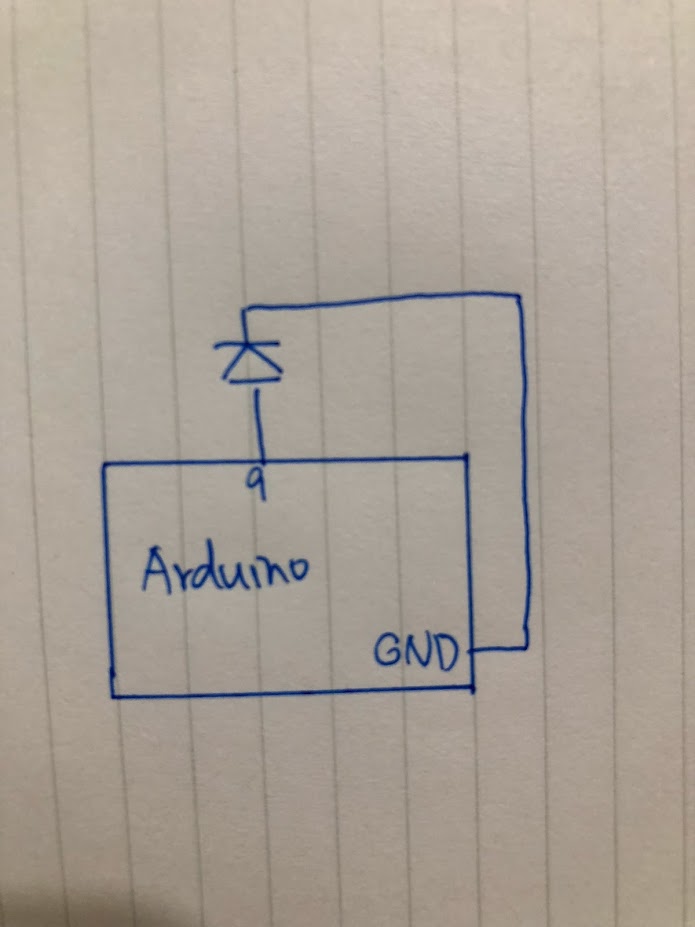 9
Arduino
GND